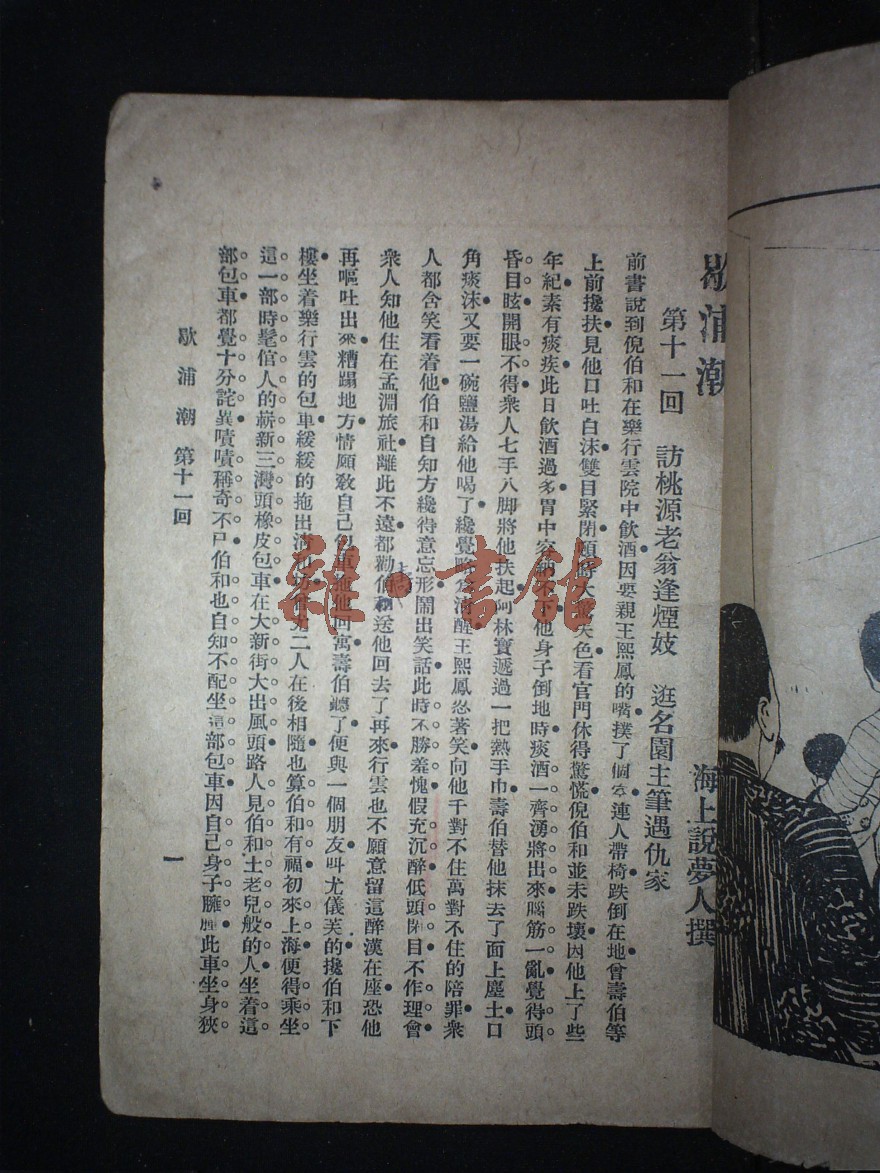 歇浦潮
海上說夢人撰
第十一回 訪桃源老翁逢煙妓 逛名園主筆遇仇家
前書說到倪伯和在樂行雲院中飲酒因要親王熙鳳的嘴撲了個空連人帶椅跌倒在地曾壽伯等
上前攙扶見他口吐白沫雙目緊閉頓時大驚失色看官門休得驚慌倪伯和並未跌壞因他上了些
年紀素有痰疾此日飲酒過多胃中容納不下他身子倒地時痰酒一齊湧將出來腦筋一亂覺得頭
昏目眩開眼不得衆人七手八脚將他扶起阿林寶遞過一把熱手巾壽伯替他抹去了面上塵土口
角痰沫又要一碗鹽湯給他喝了纔覺略爲清醒王熙鳳忍著笑向他千對不住萬對不住的陪罪衆
人都含笑看着他伯和自知方纔得意忘形鬧出笑話此時不勝羞愧假充沉醉低頭閉目不作理會
衆人知他住在孟淵旅社離此不遠都勸伯和送他回去了再來行雲也不願意留這醉漢在座恐他
再嘔吐出來糟蹋地方情願敎自己包車拖他回寓壽伯聽了便與一個朋友叫尤儀芙的攙伯和下
樓坐着樂行雲的包車緩緩的拖出清和坊伯芙二人在後相隨也算伯和有福初來上海便得乘坐
這一部時髦倌人的嶄新三灣頭橡皮包車在大新街大出風頭路人見伯和土老兒般的人坐着這
部包車都覺十分詫異嘖嘖稱奇不已伯和也自知不配坐這部包車因自己身子臃腫此車坐身狹
歇浦潮 第十一回
一
雜·書館